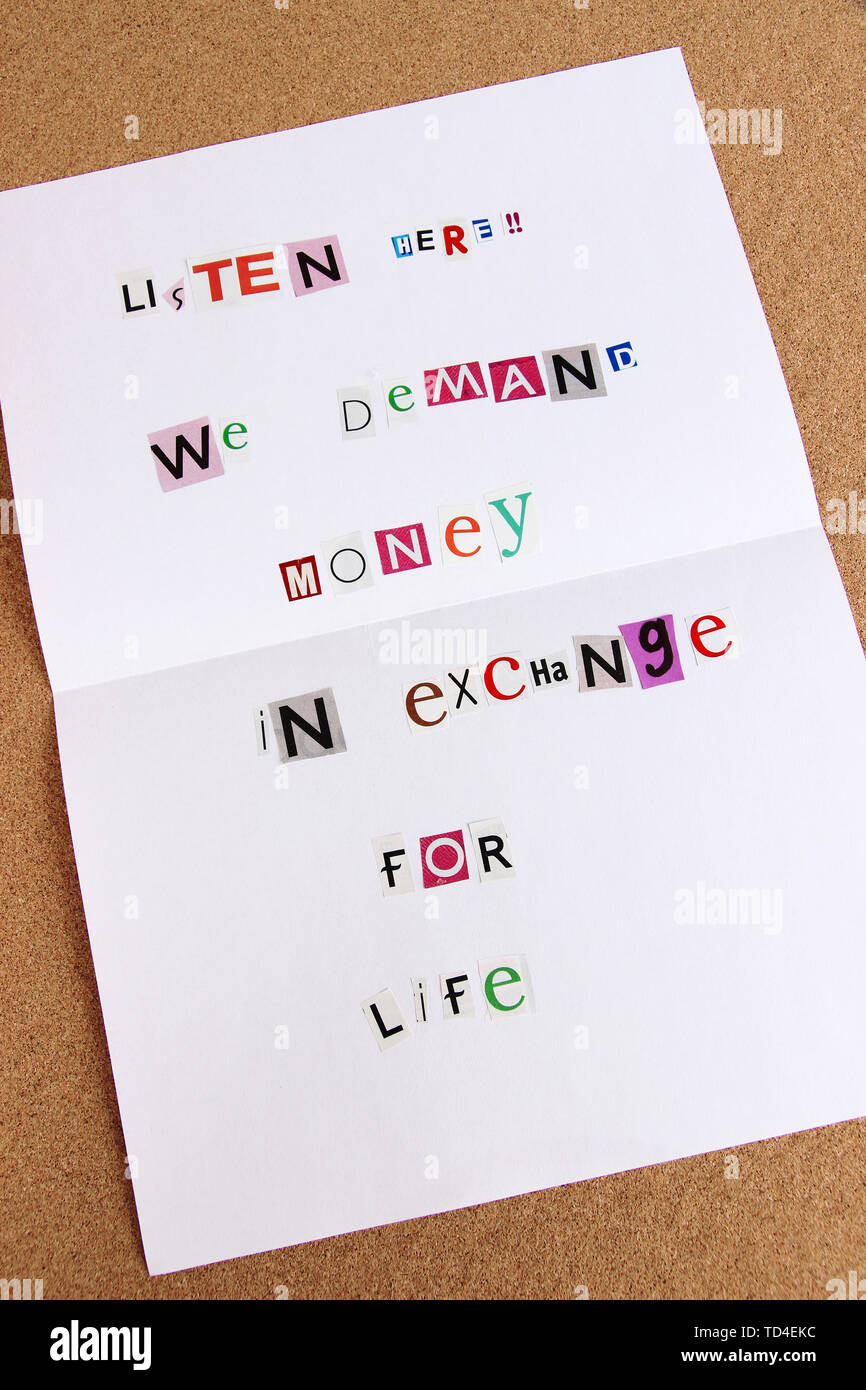 LIsTEN HERE!!
We DeMAND
MONey
iN exCHaNge
FOR
LiFe
alamy
Image ID: TD4EKC
www.alamy.com